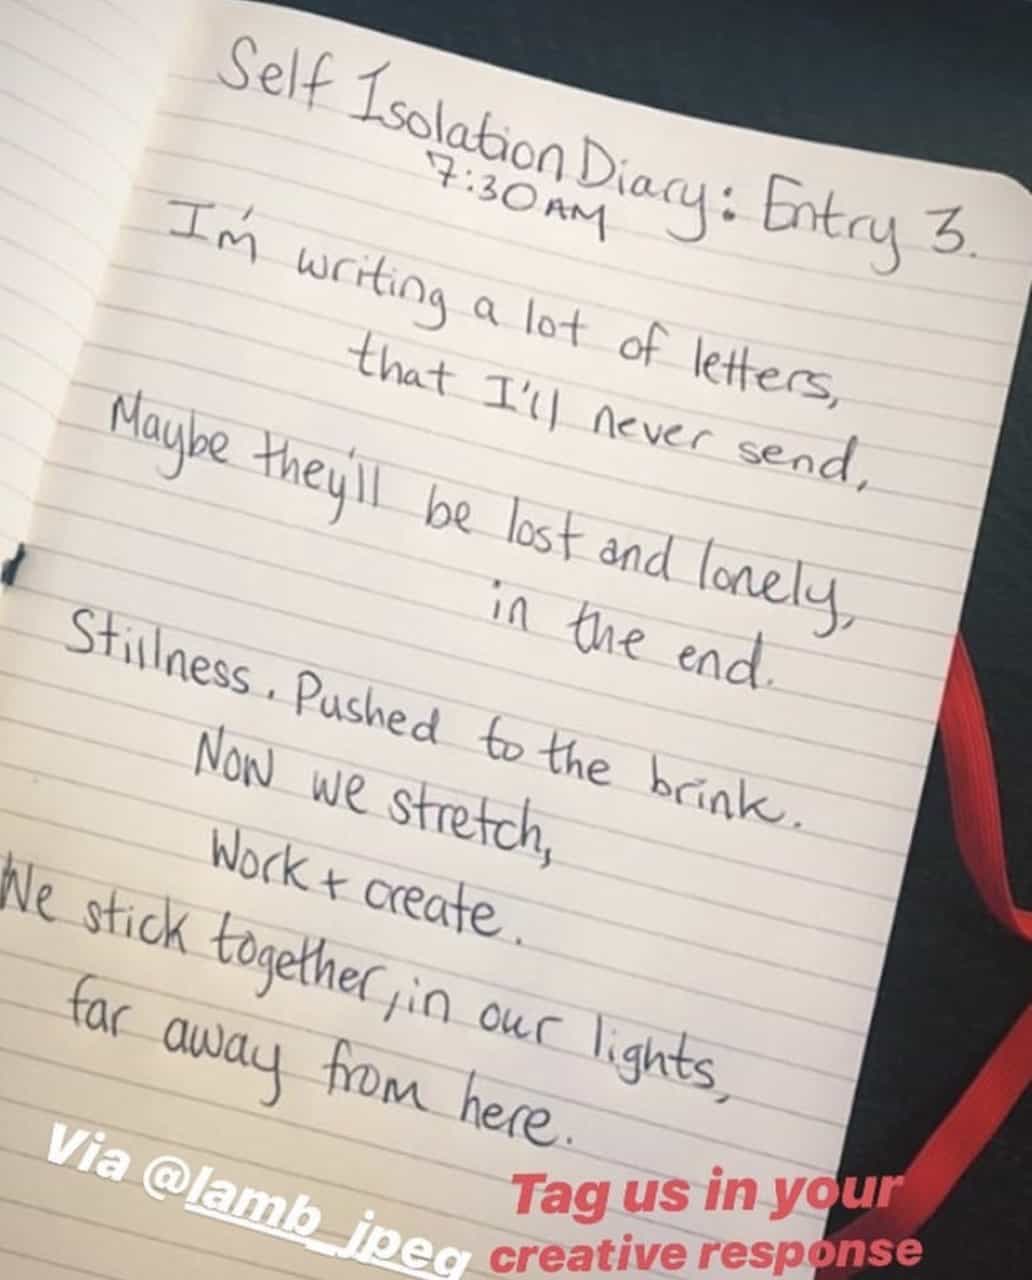 Self Isolation Diary: Entry 3.
7:30AM
I'm writing a lot of letters,
that I'll never send,
Maybe they'll be lost and lonely,
in the end.
Stillness. Pushed to the brink.
Now we stretch,
Work + create.
We stick together, in our lights,
far away from here.
Via @lamb_jpeg
Tag us in your
creative response